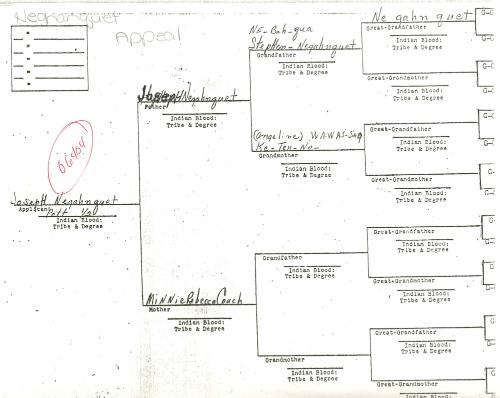 Negahnquet
Appeal
06454
Joseph Negahnquet
Applicant
Pott 1/4
Indian Blood:
Tribe & Degree
Joseph Negahnquet
Father
Indian Blood:
Tribe & Degree
Minnie Rebecca Couch
Mother
Indian Blood:
Tribe & Degree
Ne-Gah-qua
Stephen-Negahnquet
Grandfather
Indian Blood:
Tribe & Degree
(Angeline) WA-WAS-
Ke-Ten-No-
Grandmother
Indian Blood:
Tribe & Degree
Grandfather
Indian Blood:
Tribe & Degree
Grandmother
Indian Blood:
Tribe & Degree
Ne gahn quet
Great-Grandfather
Indian Blood:
Tribe & Degree
Great-Grandmother
Indian Blood:
Tribe & Degree
Great-Grandfather
Indian Blood:
Tribe & Degree
Great-Grandmother
Indian Blood:
Tribe & Degree
Great-Grandfather
Indian Blood:
Tribe & Degree
Great-Grandmother
Indian Blood:
Tribe & Degree
Great-Grandfather
Indian Blood:
Tribe & Degree
Great-Grandmother
Indian Blood: